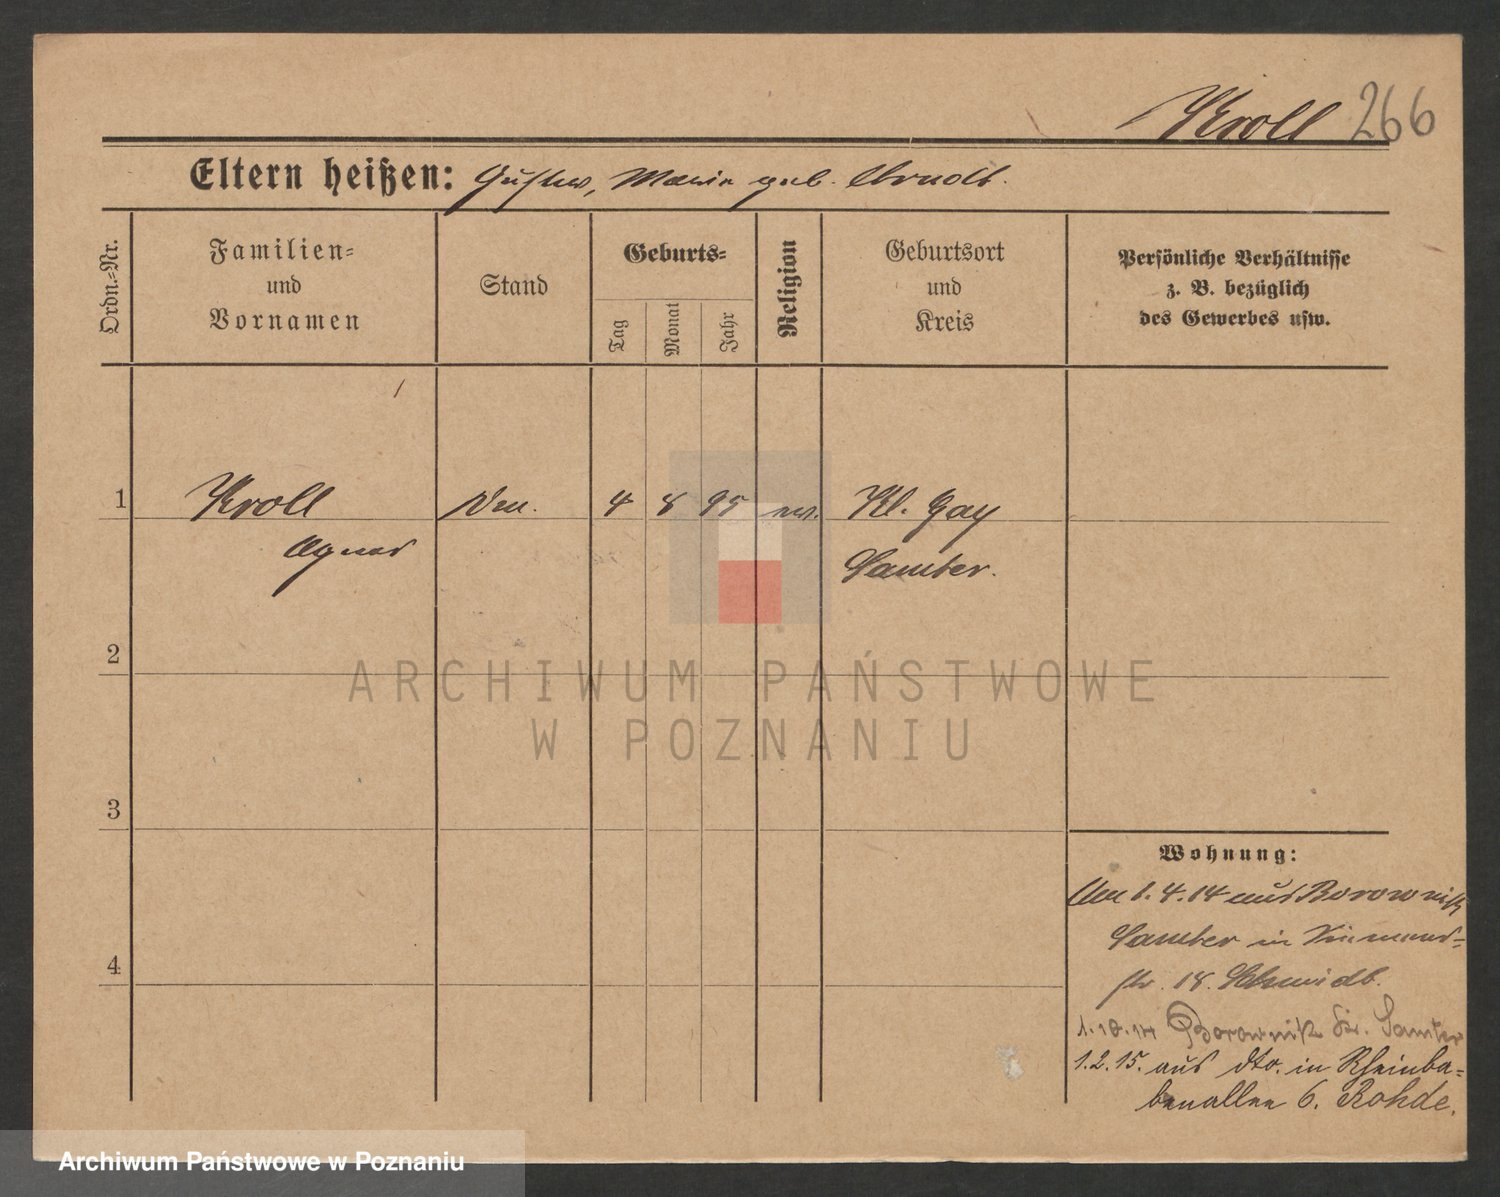 Kroll 266
Eltern heißen: Gustav, Marie geb. Arndt.
Ordn.-Nr.
Familien-
und
Vornamen
Stand
Geburts-
Tag
Monat
Jahr
Religion
Geburtsort
und
Kreis
Persönliche Verhältnisse
z. B. bezüglich
des Gewerbes usw.
1 Kroll 4 8 95 ev. Kl. Gay
Agnes Samter.
2
3
4
Wohnung:
Am 1.4.14 aus Borownik
Samter in
str. 18. Schmidt.
1.10.14 Borownik Kr. Samter
1.2.15. aus dto. in Rheinba-
benallee 6. Rohde.
ARCHIWUM PAŃSTWOWE
W POZNANIU
Archiwum Państwowe w Poznaniu